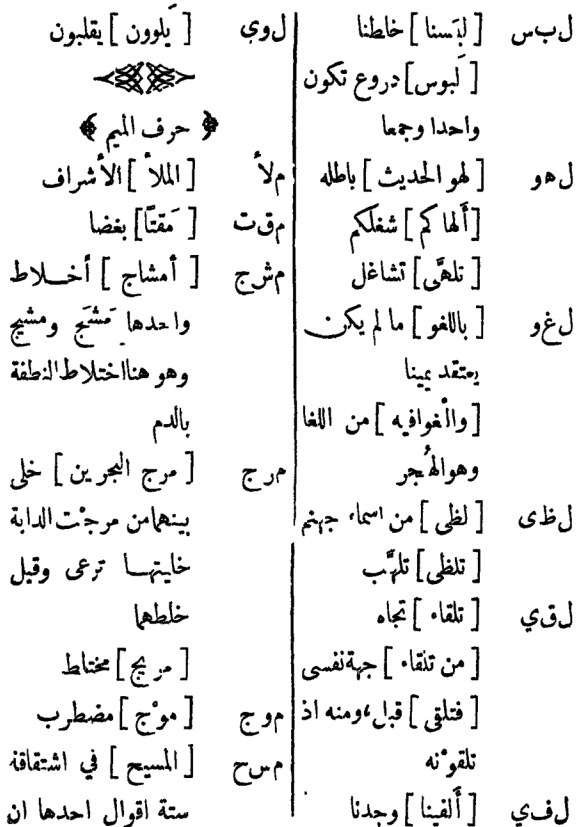 ل ب س [ لبَسنا ] خلطنا
[ لَبوس] دروع تكون
واحدا وجمعا
ل ه و [ لهو الحديث ] باطله
[أَلهاكم ] شغلكم
[ تلهَّى] تشاغل
ل غ و [ باللغو ] ما لم يكن
يعتقد يمينا
[والْغوافيه ] من اللغا
وهو الهُجر
ل ظ ى [ لظى ] من اسماء جهنم
[ تلظى] تلهَّب
ل ق ي [ تلقاء ] تجاه
[ من تلقاء ] جهة نفسى
[ فتلقى] قبل، ومنه اذ
تلقوْنه
ل ف ي [ أَلفينا] وجدنا
ل و ي [ يَلوون ] يقلبون
﴿ حرف الميم ﴾
م ل أ [ الملأ ] الأشراف
م ق ت [ مَقتًا] بغضا
م ش ج [ أمشاج ] أخـــلاط
واحدها مَشَج ومشيج
وهو هنا اختلاط النطفة
بالدم
م ر ج [ مرج البحرين ] خلى
بينهما من مرجْت الدابة
خليتهـــا ترعى وقيل
خلطهما
[ مريج] مختلط
م و ج [ موْج ] مضطرب
م س ح [ المسيح ] في اشتقاقه
ستة اقوال احدها ان